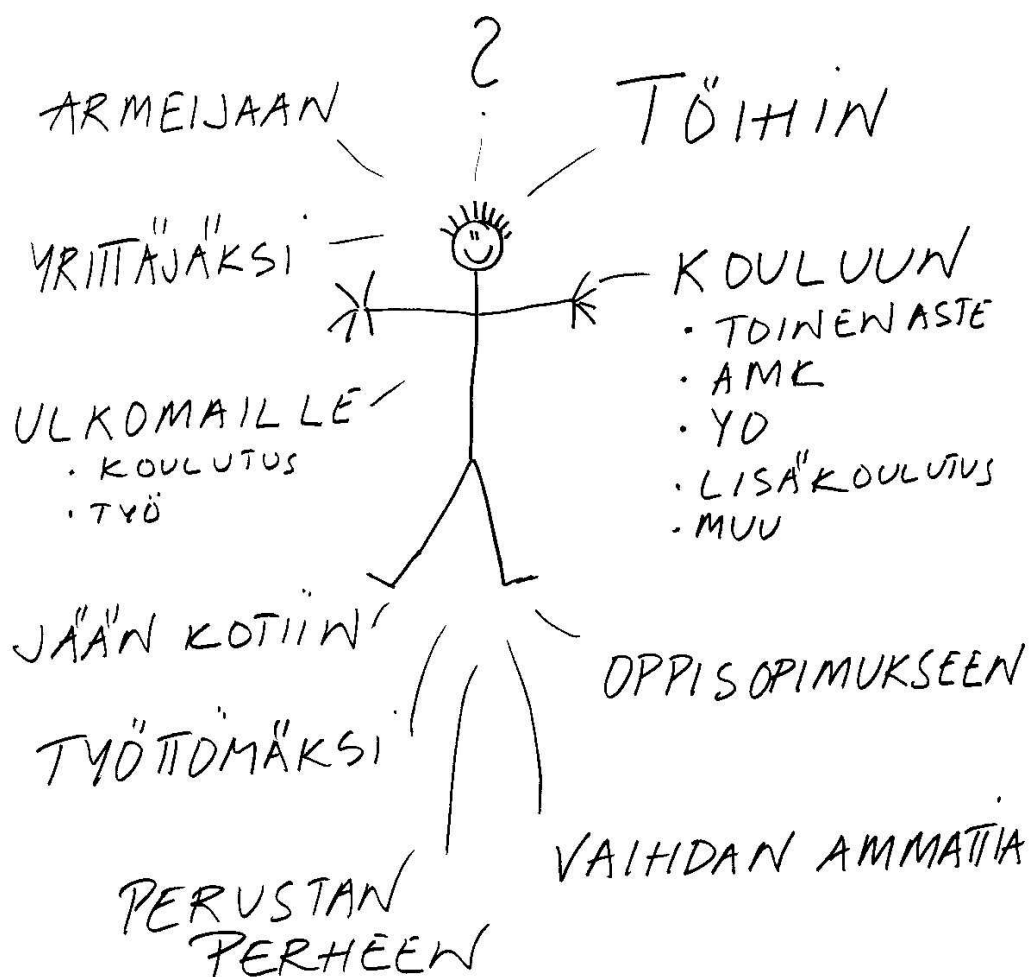 ?
ARMEIJAAN
TÖIHIN
YRITTÄJÄKSI
KOULUUN
• TOINEN ASTE
• AMK
• YO
• LISÄKOULUTUS
• MUU
ULKOMAILLE
• KOULUTUS
• TYÖ
JÄÄN KOTIIN
OPPISOPIMUKSEEN
TYÖTTÖMÄKSI
VAIHDAN AMMATTIA
PERUSTAN
PERHEEN